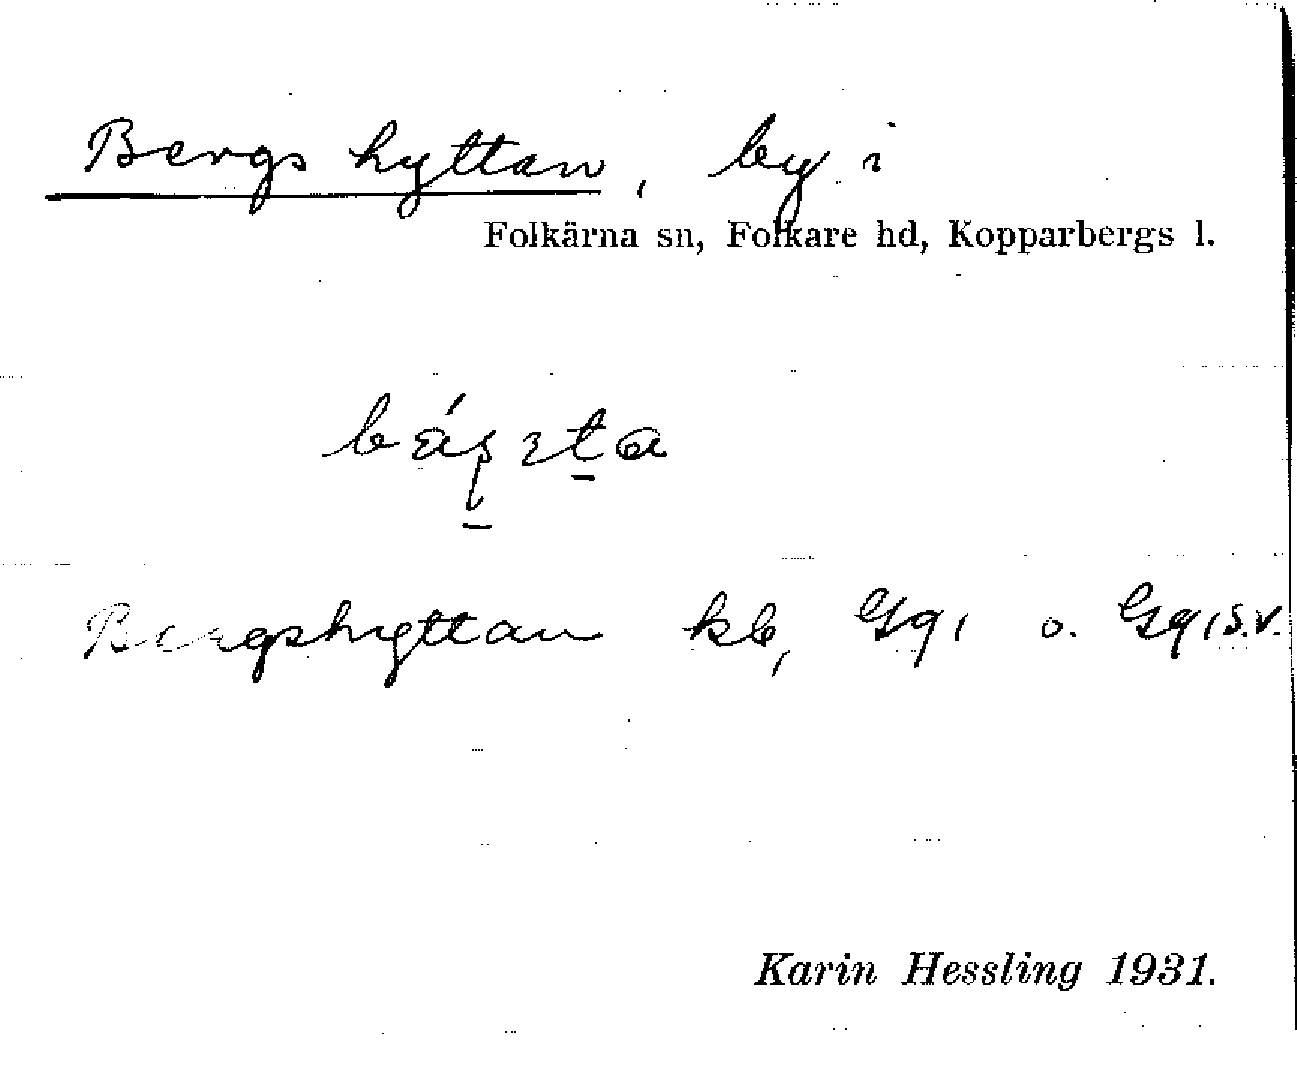 Bergshyttan, by i
Folkärna sn, Folkare hd, Kopparbergs l.
Bergshyttan kb, Gq1 o. Gq1 s.v.
Karin Hessling 1931.